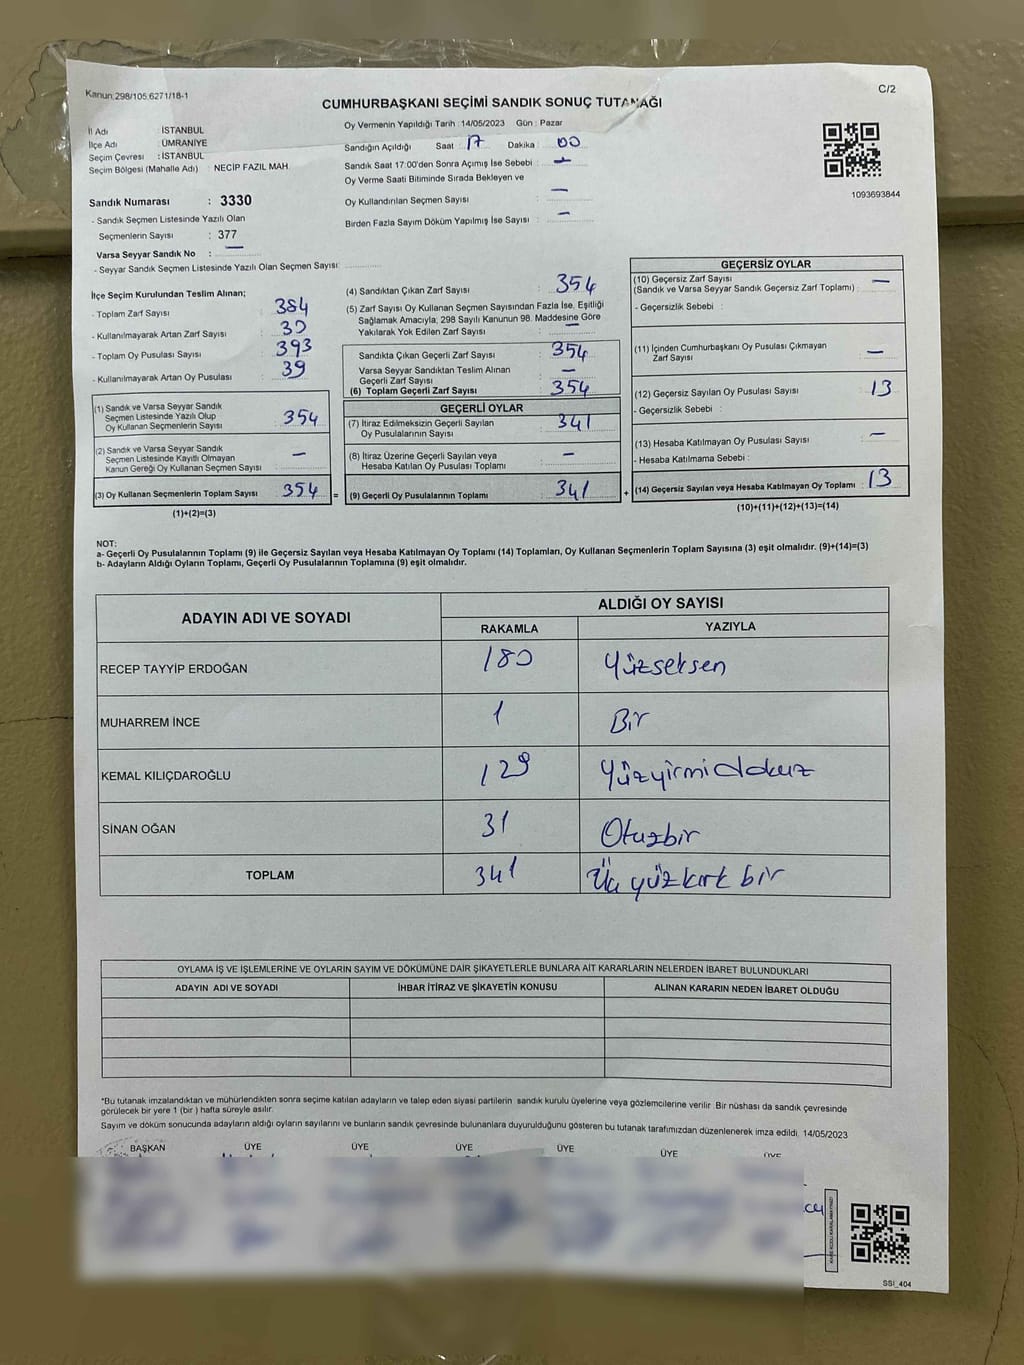 Kanun:298/105,6271/18-1
C/2
CUMHURBAŞKANI SEÇİMİ SANDIK SONUÇ TUTANAĞI
İl Adı : İSTANBUL
İlçe Adı : ÜMRANİYE
Seçim Çevresi : İSTANBUL
Seçim Bölgesi (Mahalle Adı) : NECİP FAZIL MAH.
Oy Vermenin Yapıldığı Tarih : 14/05/2023 Gün : Pazar
Sandığın Açıldığı Saat : 17 Dakika : 00
Sandık Saat 17:00'den Sonra Açımış İse Sebebi : —
Oy Verme Saati Bitiminde Sırada Bekleyen ve
Oy Kullandırılan Seçmen Sayısı : —
Birden Fazla Sayım Döküm Yapılmış İse Sayısı : —
1093693844
Sandık Numarası : 3330
- Sandık Seçmen Listesinde Yazılı Olan
Seçmenlerin Sayısı : 377
Varsa Seyyar Sandık No : —
- Seyyar Sandık Seçmen Listesinde Yazılı Olan Seçmen Sayısı:
İlçe Seçim Kurulundan Teslim Alınan;
- Toplam Zarf Sayısı : 384
- Kullanılmayarak Artan Zarf Sayısı : 30
- Toplam Oy Pusulası Sayısı : 393
- Kullanılmayarak Artan Oy Pusulası : 39
(1) Sandık ve Varsa Seyyar Sandık
Seçmen Listesinde Yazılı Olup
Oy Kullanan Seçmenlerin Sayısı : 354
(2) Sandık ve Varsa Seyyar Sandık
Seçmen Listesinde Kayıtlı Olmayan
Kanun Gereği Oy Kullanan Seçmen Sayısı : —
(3) Oy Kullanan Seçmenlerin Toplam Sayısı : 354 =
(1)+(2)=(3)
(4) Sandıktan Çıkan Zarf Sayısı : 354
(5) Zarf Sayısı Oy Kullanan Seçmen Sayısından Fazla İse, Eşitliği
Sağlamak Amacıyla, 298 Sayılı Kanunun 98. Maddesine Göre
Yakılarak Yok Edilen Zarf Sayısı : —
Sandıkta Çıkan Geçerli Zarf Sayısı : 354
Varsa Seyyar Sandıktan Teslim Alınan
Geçerli Zarf Sayısı : —
(6) Toplam Geçerli Zarf Sayısı : 354
GEÇERLİ OYLAR
(7) İtiraz Edilmeksizin Geçerli Sayılan
Oy Pusulalarının Sayısı : 341
(8) İtiraz Üzerine Geçerli Sayılan veya
Hesaba Katılan Oy Pusulası Toplamı : —
(9) Geçerli Oy Pusulalarının Toplamı : 341 +
GEÇERSİZ OYLAR
(10) Geçersiz Zarf Sayısı
(Sandık ve Varsa Seyyar Sandık Geçersiz Zarf Toplamı) : —
- Geçersizlik Sebebi :
(11) İçinden Cumhurbaşkanı Oy Pusulası Çıkmayan
Zarf Sayısı : —
(12) Geçersiz Sayılan Oy Pusulası Sayısı : 13
- Geçersizlik Sebebi :
(13) Hesaba Katılmayan Oy Pusulası Sayısı : —
- Hesaba Katılmama Sebebi :
(14) Geçersiz Sayılan veya Hesaba Katılmayan Oy Toplamı : 13
(10)+(11)+(12)+(13)=(14)
NOT:
a- Geçerli Oy Pusulalarının Toplamı (9) ile Geçersiz Sayılan veya Hesaba Katılmayan Oy Toplamı (14) Toplamları, Oy Kullanan Seçmenlerin Toplam Sayısına (3) eşit olmalıdır. (9)+(14)=(3)
b- Adayların Aldığı Oyların Toplamı, Geçerli Oy Pusulalarının Toplamına (9) eşit olmalıdır.
ADAYIN ADI VE SOYADI ALDIĞI OY SAYISI
RAKAMLA YAZIYLA
RECEP TAYYİP ERDOĞAN 180 Yüzseksen
MUHARREM İNCE 1 Bir
KEMAL KILIÇDAROĞLU 129 Yüzyirmidokuz
SİNAN OĞAN 31 Otuzbir
TOPLAM 341 Üç yüzkırk bir
OYLAMA İŞ VE İŞLEMLERİNE VE OYLARIN SAYIM VE DÖKÜMÜNE DAİR ŞİKAYETLERLE BUNLARA AİT KARARLARIN NELERDEN İBARET BULUNDUKLARI
ADAYIN ADI VE SOYADI İHBAR İTİRAZ VE ŞİKAYETİN KONUSU ALINAN KARARIN NEDEN İBARET OLDUĞU
*Bu tutanak imzalandıktan ve mühürlendikten sonra seçime katılan adayların ve talep eden siyasi partilerin sandık kurulu üyelerine veya gözlemcilerine verilir. Bir nüshası da sandık çevresinde
görülecek bir yere 1 (bir) hafta süreyle asılır.
Sayım ve döküm sonucunda adayların aldığı oyların sayılarını ve bunların sandık çevresinde bulunanlara duyurulduğunu gösteren bu tutanak tarafımızdan düzenlenerek imza edildi. 14/05/2023
BAŞKAN ÜYE ÜYE ÜYE ÜYE ÜYE ÜYE
SSI_404